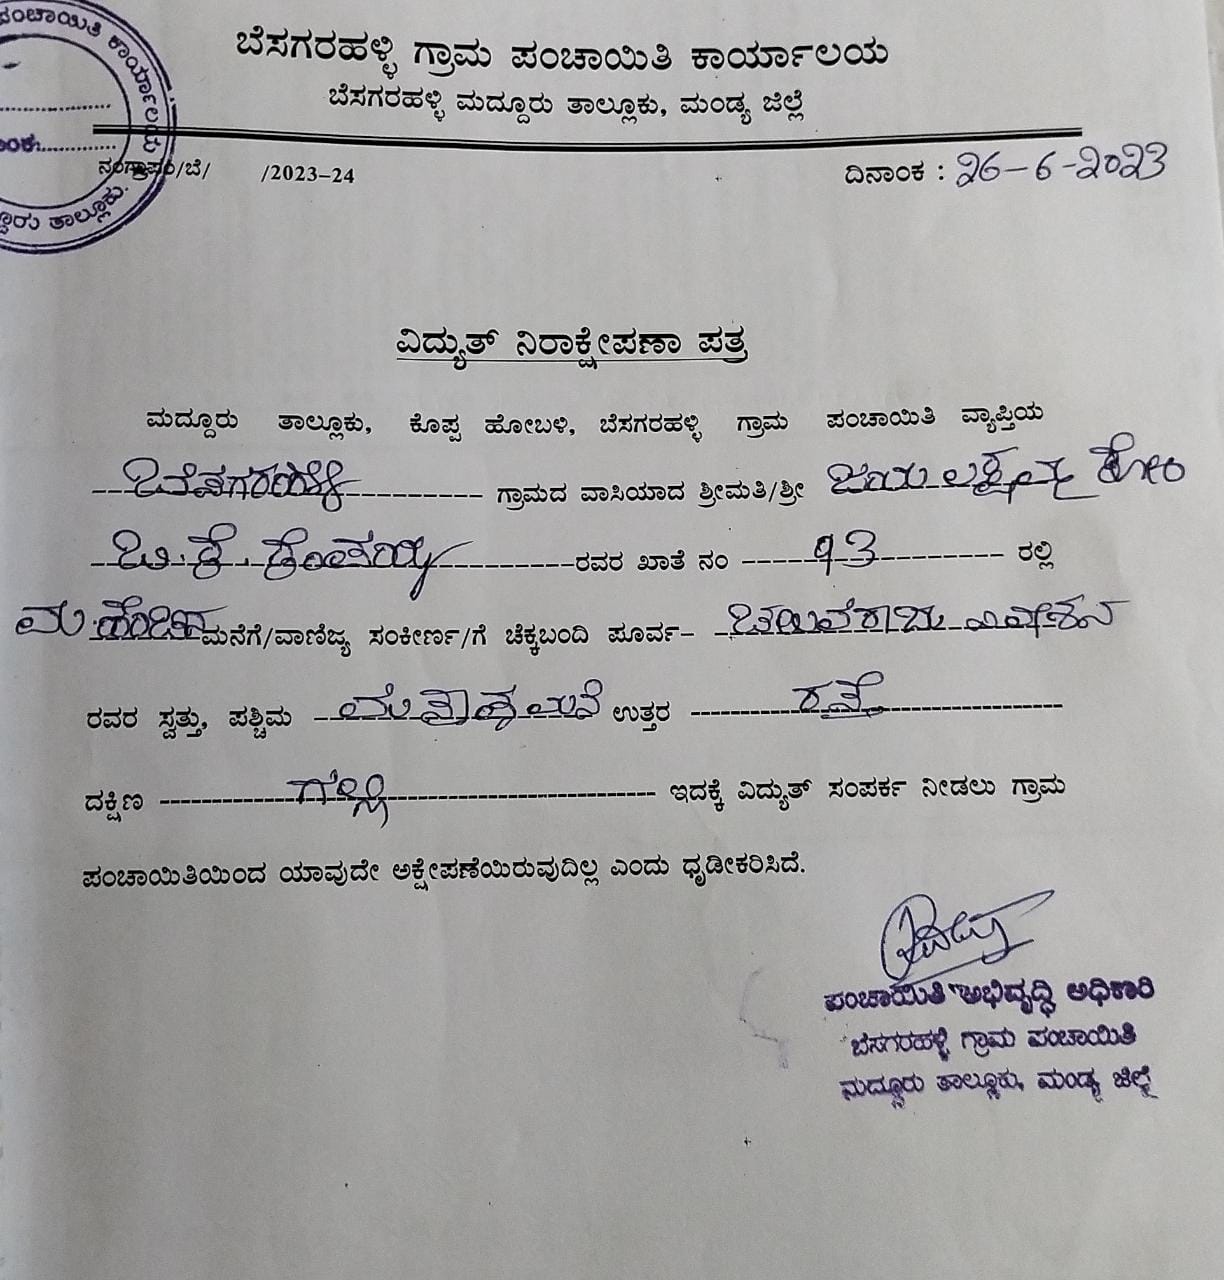 ಪಂಚಾಯಿತಿ ಕಾರ್ಯಾಲಯ
ತಾಲ್ಲೂಕು.
ಬೆಸಗರಹಳ್ಳಿ ಗ್ರಾಮ ಪಂಚಾಯಿತಿ ಕಾರ್ಯಾಲಯ
ಬೆಸಗರಹಳ್ಳಿ ಮದ್ದೂರು ತಾಲ್ಲೂಕು, ಮಂಡ್ಯ ಜಿಲ್ಲೆ
ನಂಗ್ರಾಪಂ/ಬೆ/ /2023-24 ದಿನಾಂಕ : 26-6-2023
ವಿದ್ಯುತ್ ನಿರಾಕ್ಷೇಪಣಾ ಪತ್ರ
ಮದ್ದೂರು ತಾಲ್ಲೂಕು, ಕೊಪ್ಪ ಹೋಬಳಿ, ಬೆಸಗರಹಳ್ಳಿ ಗ್ರಾಮ ಪಂಚಾಯಿತಿ ವ್ಯಾಪ್ತಿಯ
ಬೆಸಗರಹಳ್ಳಿ ಗ್ರಾಮದ ವಾಸಿಯಾದ ಶ್ರೀಮತಿ/ಶ್ರೀ ಜಯಲಕ್ಷ್ಮಮ್ಮ ಕೋಂ
ಬಿ.ಕೆ. ಕೆಂಪಯ್ಯ ರವರ ಖಾತೆ ನಂ 93 ರಲ್ಲಿ
ಮನೆಗೆ/ವಾಣಿಜ್ಯ ಸಂಕೀರ್ಣ/ಗೆ ಚೆಕ್ಕಬಂದಿ ಪೂರ್ವ- ನಿವೇಶನ
ರವರ ಸ್ವತ್ತು, ಪಶ್ಚಿಮ ಮನೆ ಉತ್ತರ ರಸ್ತೆ
ದಕ್ಷಿಣ ಗಲ್ಲಿ ಇದಕ್ಕೆ ವಿದ್ಯುತ್ ಸಂಪರ್ಕ ನೀಡಲು ಗ್ರಾಮ
ಪಂಚಾಯಿತಿಯಿಂದ ಯಾವುದೇ ಅಕ್ಷೇಪಣೆಯಿರುವುದಿಲ್ಲ ಎಂದು ಧೃಡೀಕರಿಸಿದೆ.
ಪಂಚಾಯಿತಿ ಅಭಿವೃದ್ಧಿ ಅಧಿಕಾರಿ
ಬೆಸಗರಹಳ್ಳಿ ಗ್ರಾಮ ಪಂಚಾಯಿತಿ
ಮದ್ದೂರು ತಾಲ್ಲೂಕು, ಮಂಡ್ಯ ಜಿಲ್ಲೆ